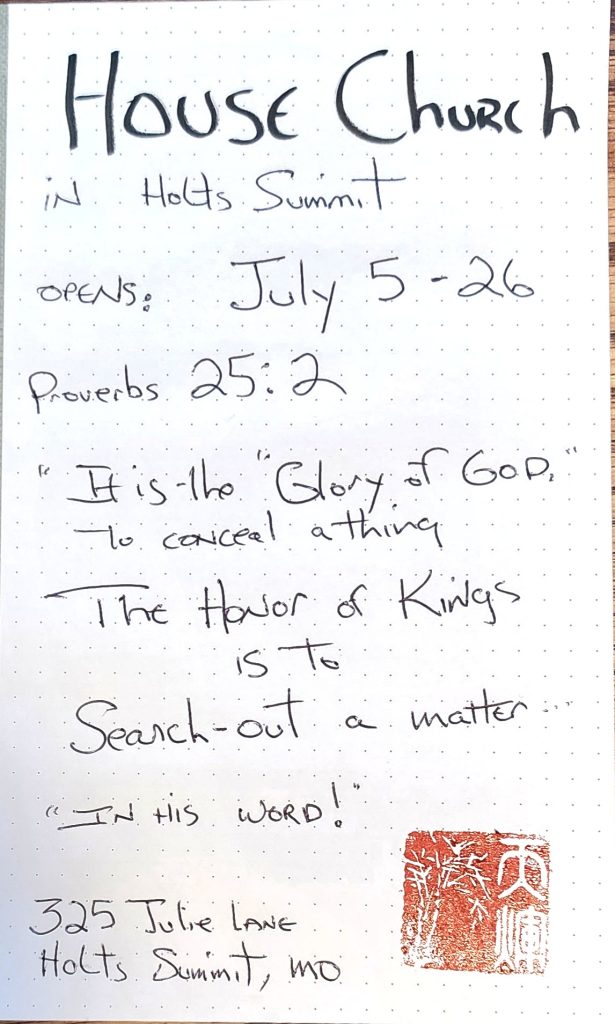 House Church
in Holts Summit
OPENS: July 5-26
Proverbs 25:2
"It is the "Glory of GOD,"
to conceal a thing
The Honor of Kings
is To
Search-out a matter...
"IN His WORD!"
325 Julie LANE
Holts Summit, MO
天